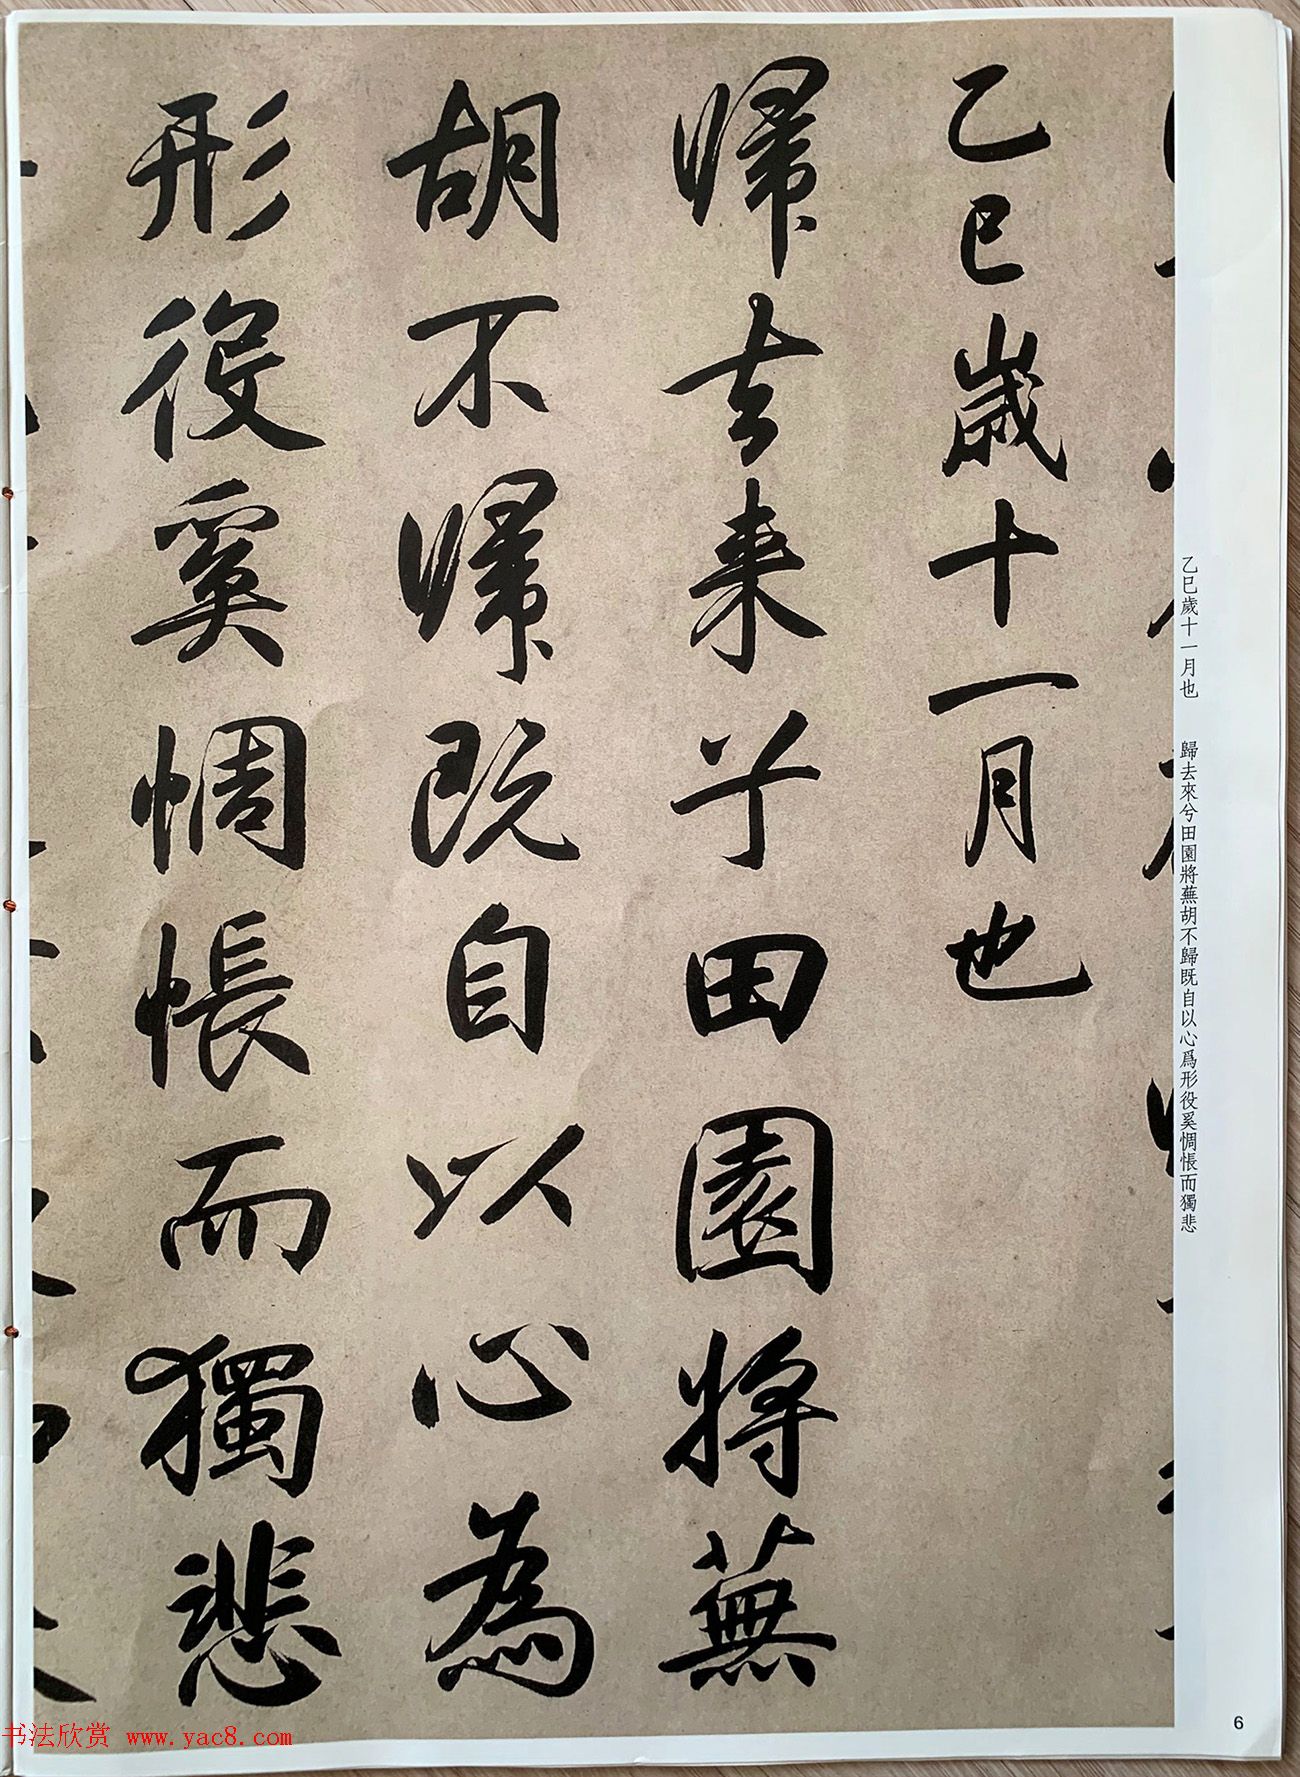 乙巳歲十一月也
歸去来兮田園将蕪
胡不歸既自以心為
形役奚惆悵而獨悲
乙巳歲十一月也　歸去來兮田園將蕪胡不歸既自以心爲形役奚惆悵而獨悲
6
书法欣赏 www.yac8.com